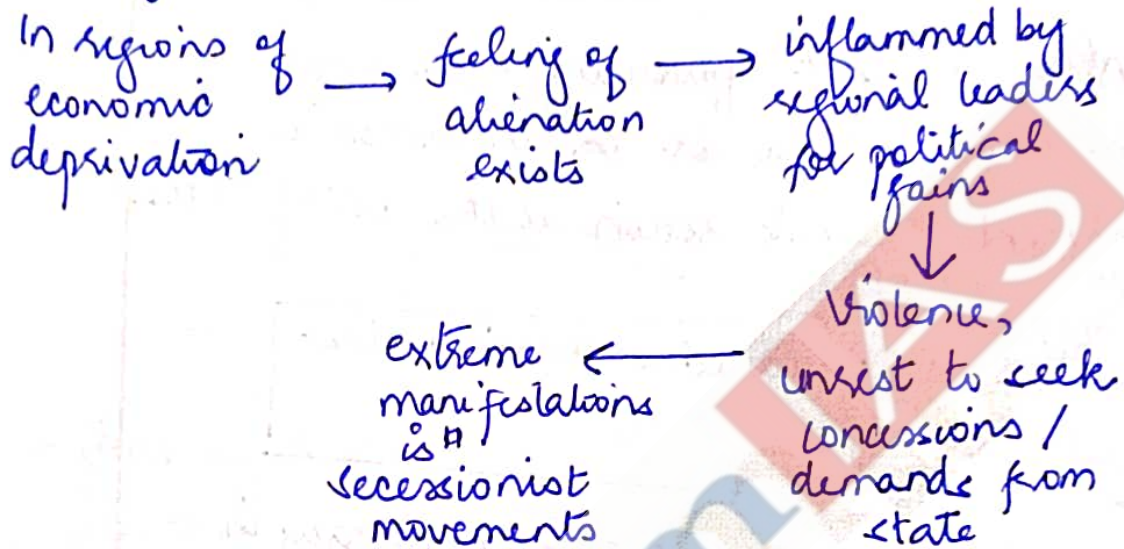 In regions of
economic
deprivation
→ feeling of
alienation
exists
→ inflammed by
regional leaders
for political
gains
↓
Violence,
unrest to seek
concessions /
demands from
state
← extreme
manifestations
is
secessionist
movements
IAS